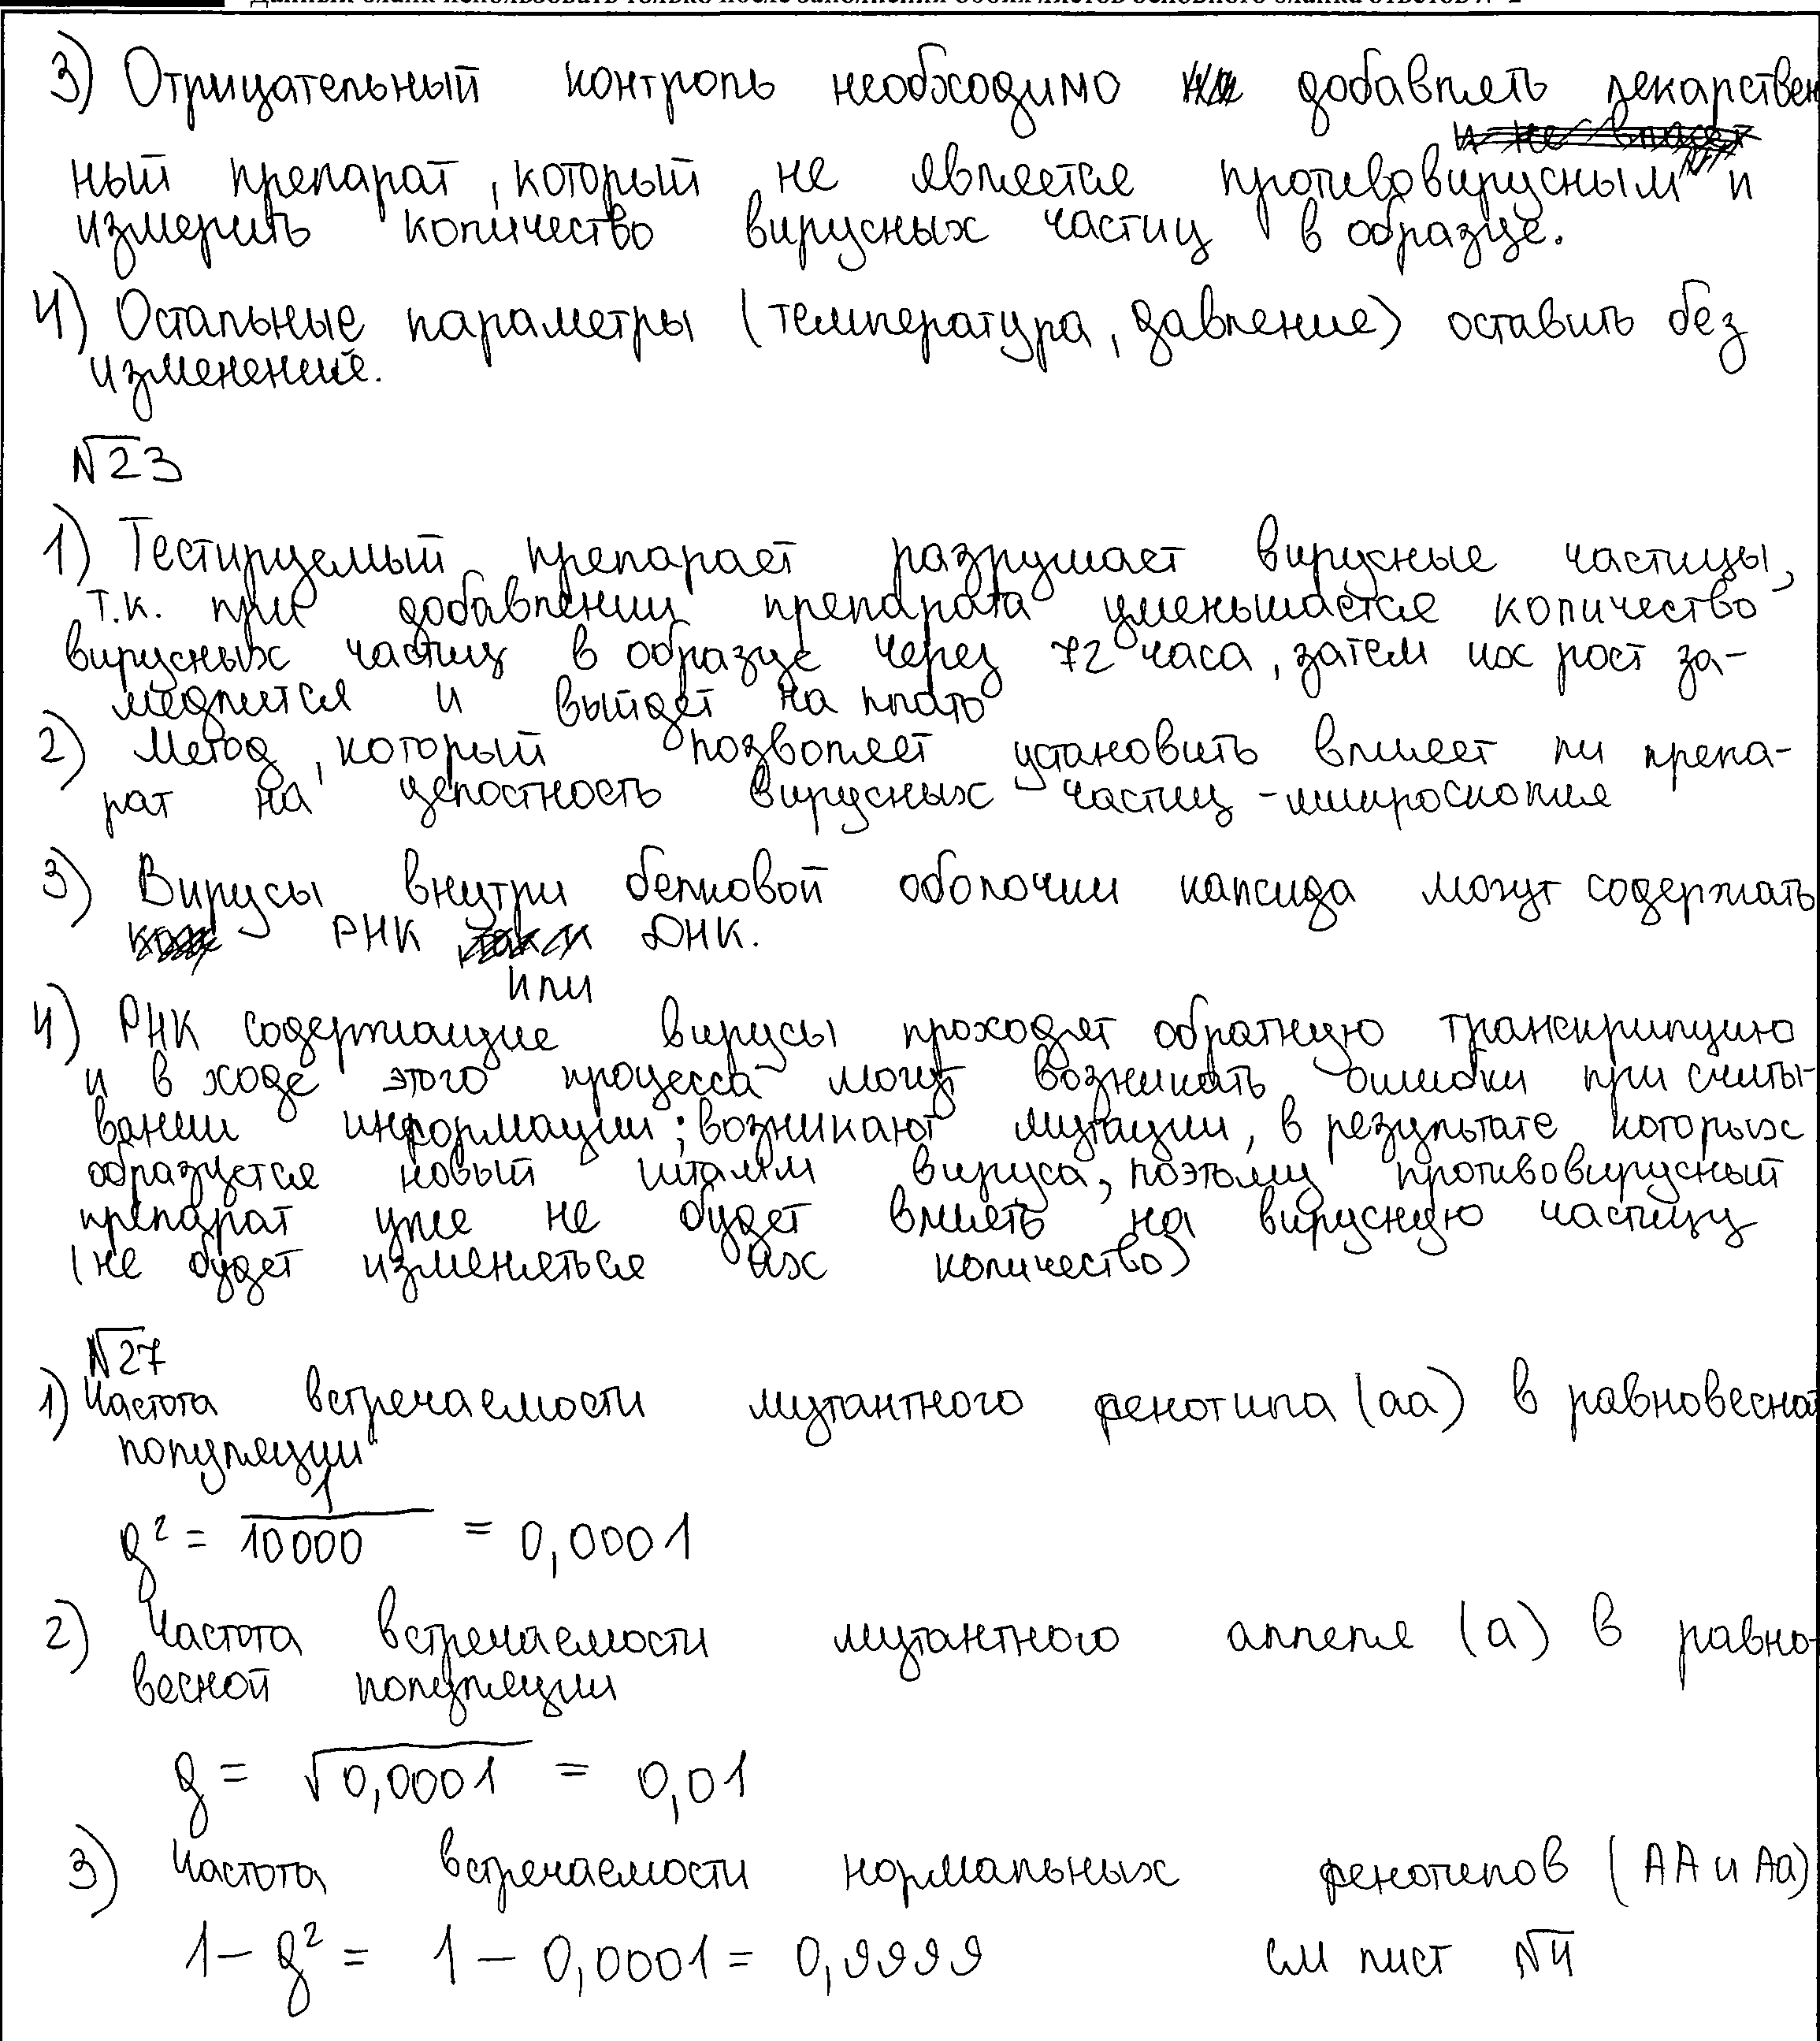 Данный бланк использовать только после заполнения обоих листов основного бланка ответов № 2
3) Отрицательный контроль необходимо добавлять лекарствен
ный препарат, который не является противовирусным и
измерить количество вирусных частиц в образце.
4) Остальные параметры (температура, давление) оставить без
изменений.
№23
1) Тестируемый препарает разрушает вирусные частицы,
т.к. при добавлении препарата уменьшается количество
вирусных частиц в образце через 72 часа, затем их рост за-
медлится и выйдет на плато
2) Метод, который позволяет установить влияет ли препа-
рат на целостность вирусных частиц - микроскопия
3) Вирусы внутри белковой оболочки капсида могут содержать
РНК или ДНК.
4) РНК содержащие вирусы проходят обратную транскрипцию
и в ходе этого процесса могут возникать ошибки при считы-
вании информации; возникают мутации, в результате которых
образуется новый штамм вируса, поэтому противовирусный
препарат уже не будет влиять на вирусную частицу
(не будет изменяться их количество)
№27
1) Частота встречаемости мутантного фенотипа (aa) в равновесной
популяции
q² = 1/10000 = 0,0001
2) Частота встречаемости мутантного аллеля (a) в равно-
весной популяции
q = √0,0001 = 0,01
3) Частота встречаемости нормальных фенотипов (AA и Aa)
1 - q² = 1 - 0,0001 = 0,9999 см лист №4